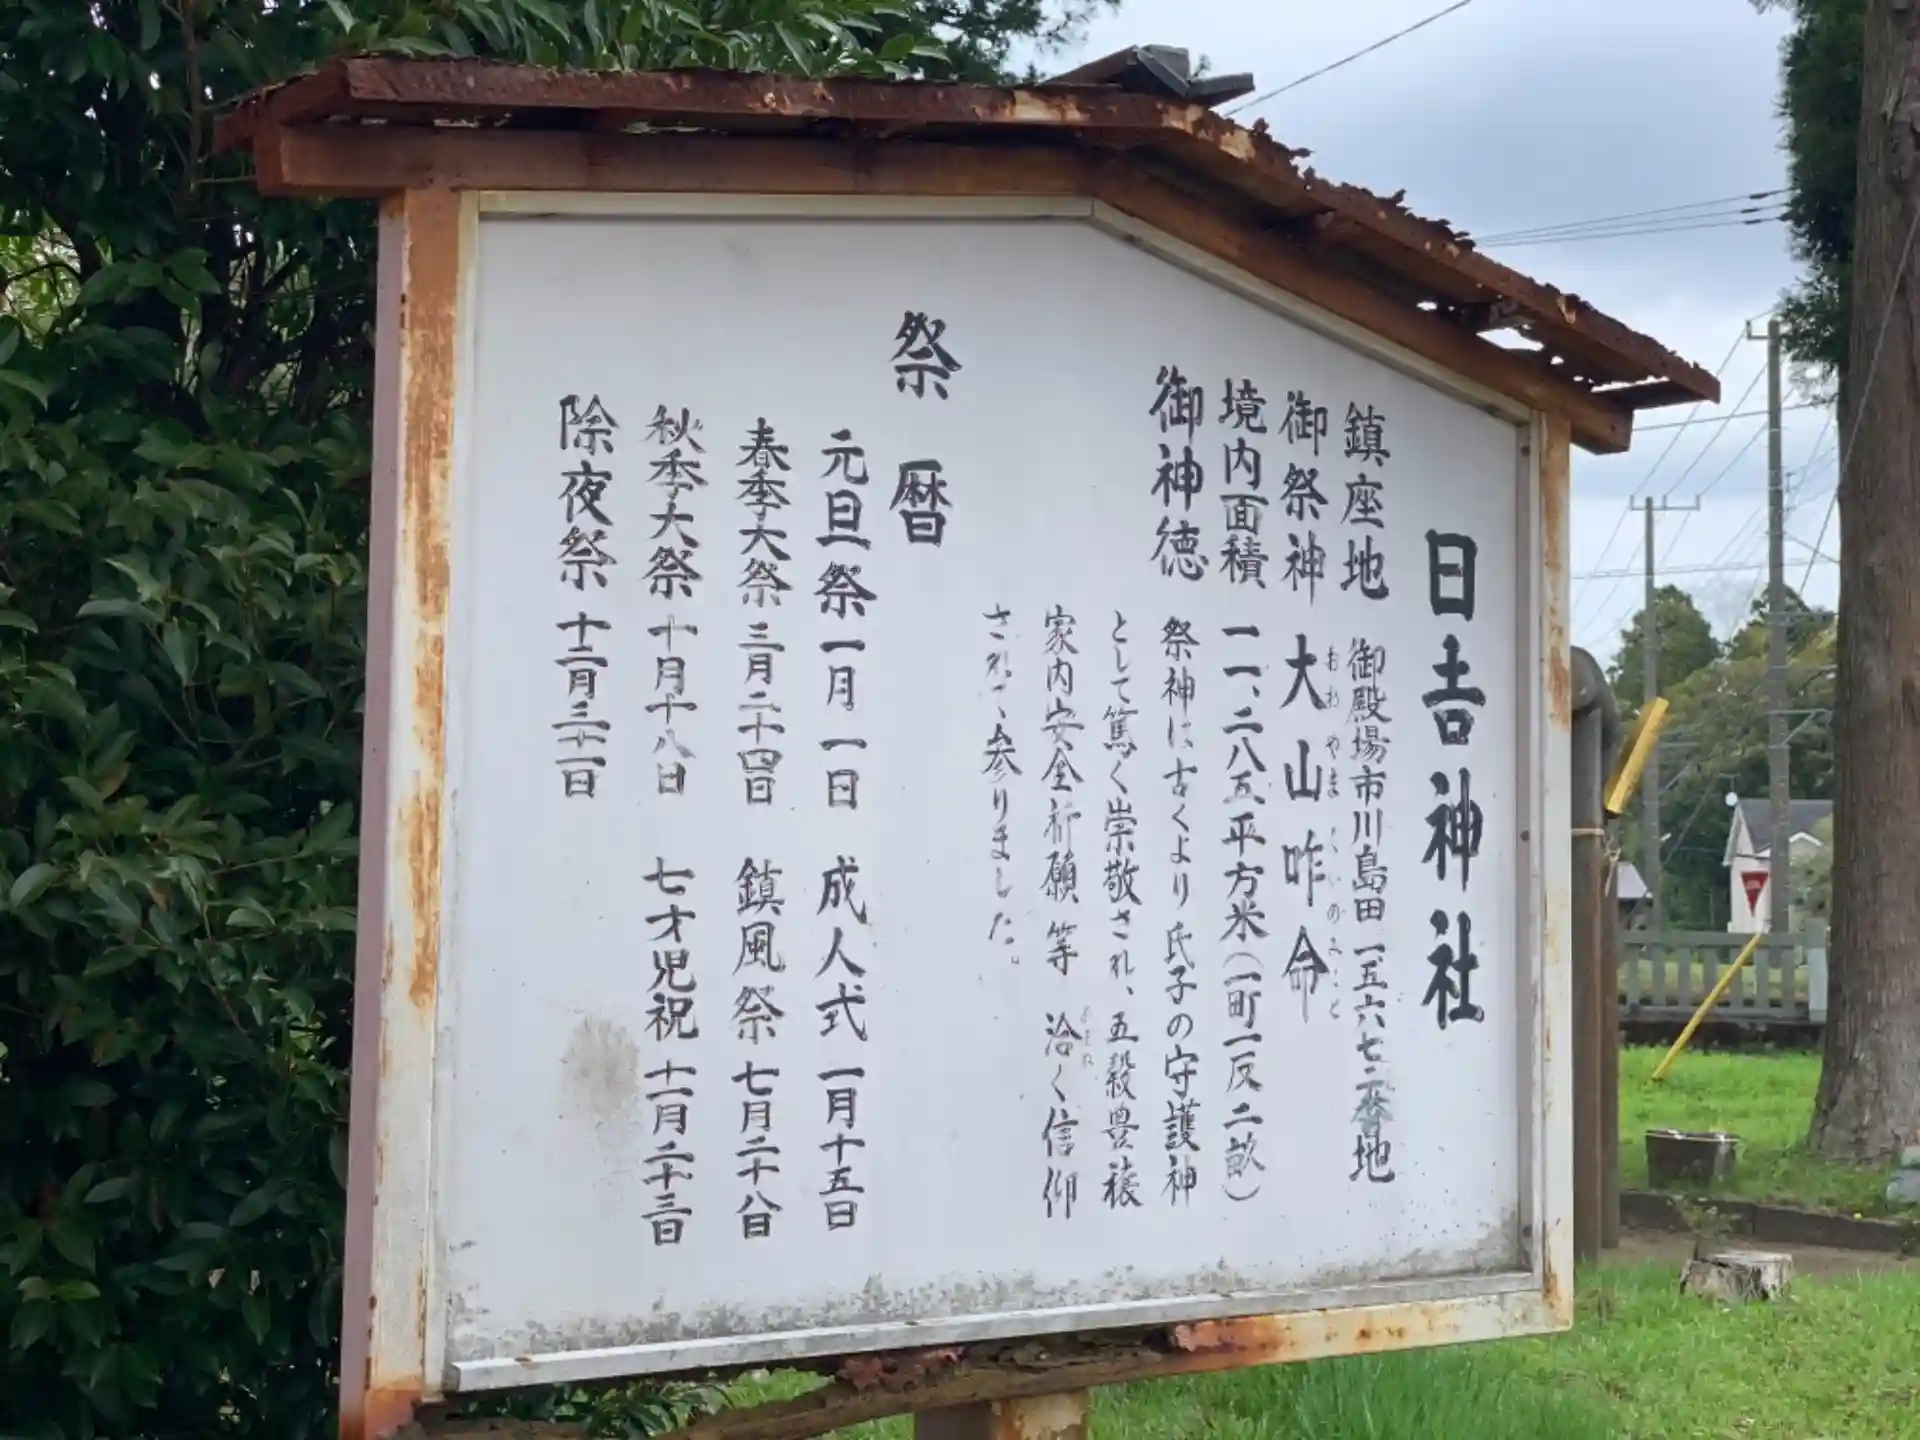 日吉神社
鎮座地 御殿場市川島田一五六七-二番地
御祭神 大山咋命
おおやまくいのみこと
境内面積 一一、二八五平方米(一町一反二畝)
御神徳 祭神は古くより氏子の守護神
として篤く崇敬され、五穀豊穣
家内安全祈願等 洽く信仰
されて、参りました。
祭暦
元旦祭 一月一日 成人式 一月十五日
春季大祭 三月二十四日 鎮風祭 七月二十八日
秋季大祭 十月十八日 七才児祝 十一月二十三日
除夜祭 十二月三十一日